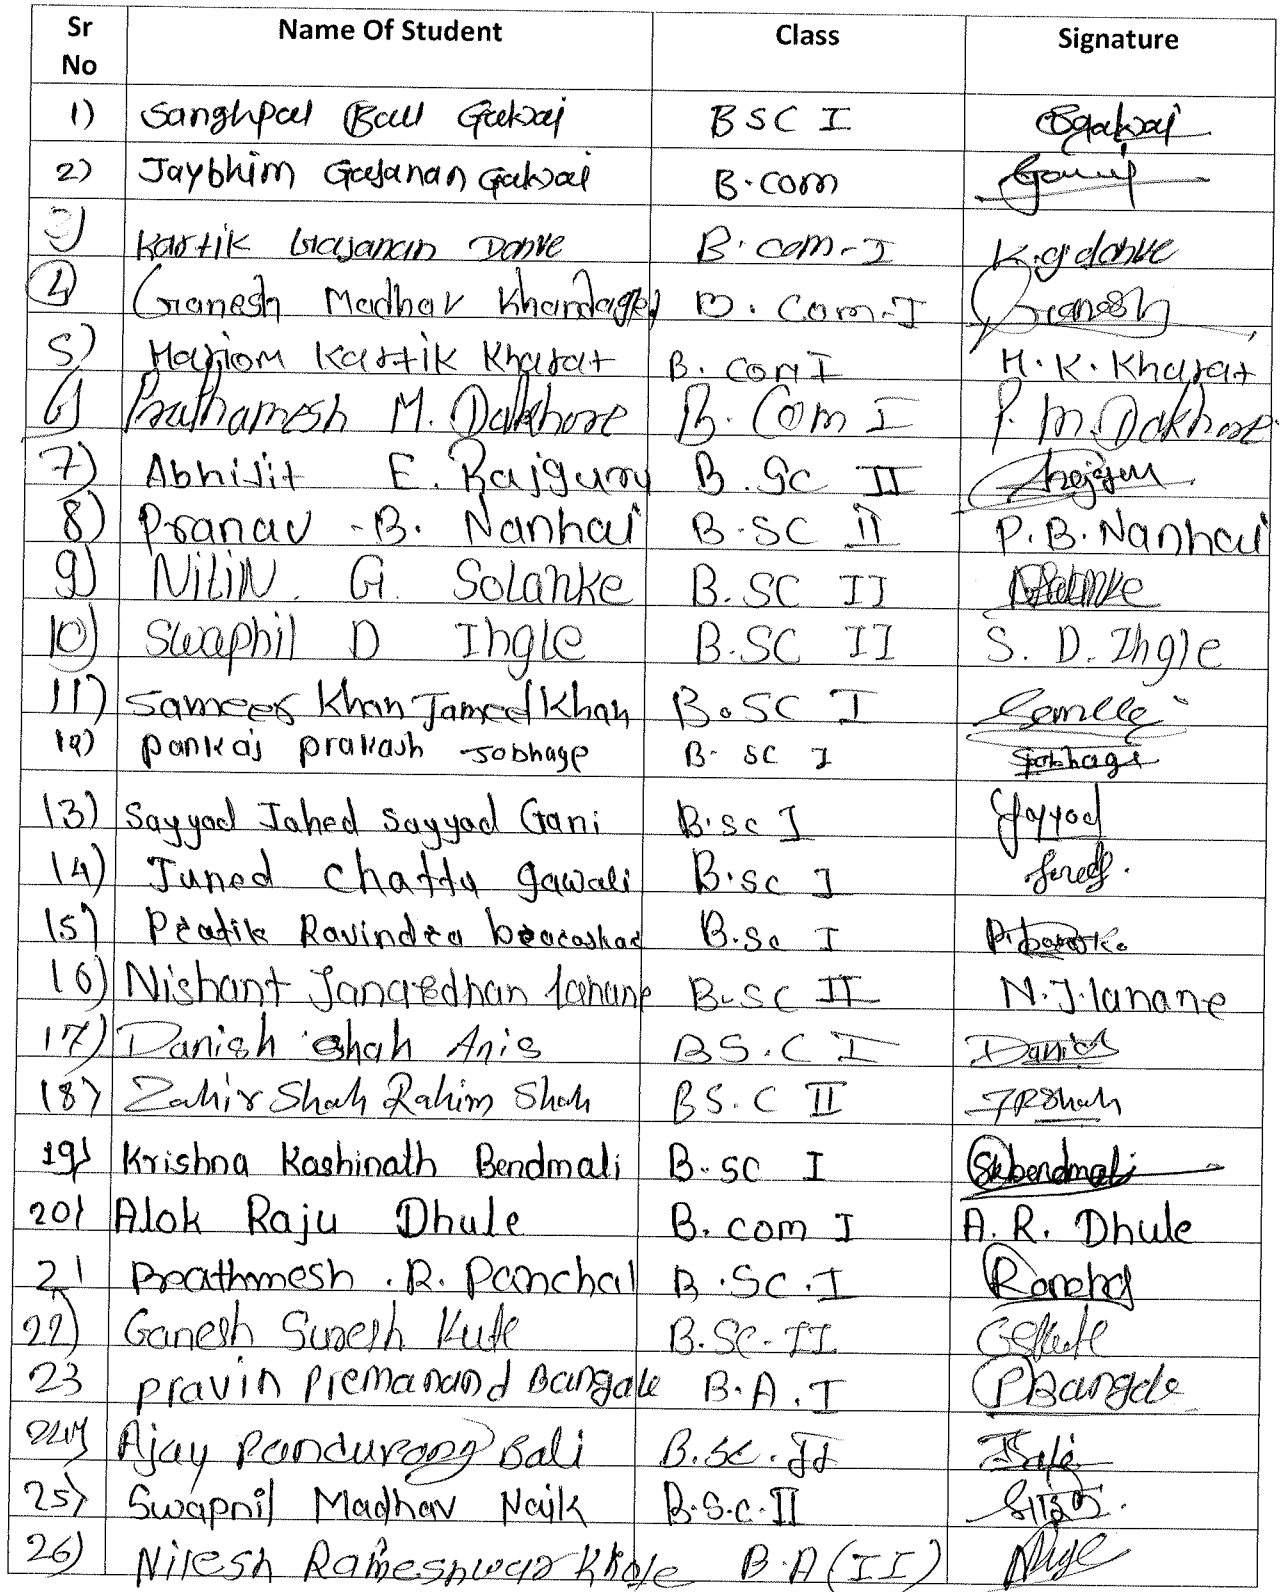 Sr No Name Of Student Class Signature
1) Sanghpal Bali Gawai BSC I
2) Jaybhim Gajanan Gawai B.com
3) Kartik Gajanan Danve B.com-I K.g danve
4) Ganesh Madhav Khandagle B.Com-I Ganesh
5) Hariom Kartik Kharat B.com I H.K.Kharat
6) Prathamesh M. Dakhore B.Com I P.M.Dakhore
7) Abhijit E. Rajguru B.Sc II
8) Pranav B. Nanhai B.SC II P.B.Nanhai
9) NitiN G. Solanke B.SC II
10) Swapnil D Ingle B.SC II S.D.Ingle
11) Sameer Khan Jameel Khan B.SC I
12) Pankaj prakash Jobhage B.SC I Jobhage
13) Sayyad Jahed Sayyad Gani B.sc I Sayyad
14) Juned Chattu gawali B.sc I
15) Pratik Ravindra B.Sc I
16) Nishant Janardhan lahane B.SC II N.J.lahane
17) Danish shah Anis BS.C I Danish
18) Zahir Shah Rahim Shah BS.C II
19) Krishna Kashinath Bendmali B.sc I
20) Alok Raju Dhule B.com I A.R. Dhule
21 Prathmesh .R. Panchal B.Sc.I
22) Ganesh Suresh Kute B.Sc-II GSKute
23 Pravin Premanand Bangale B.A.I PBangale
24) Ajay Pandurang Bali B.Sc.II
25) Swapnil Madhav Naik B.S.c.II
26) Nilesh Rameshwar Khole B.A (II)